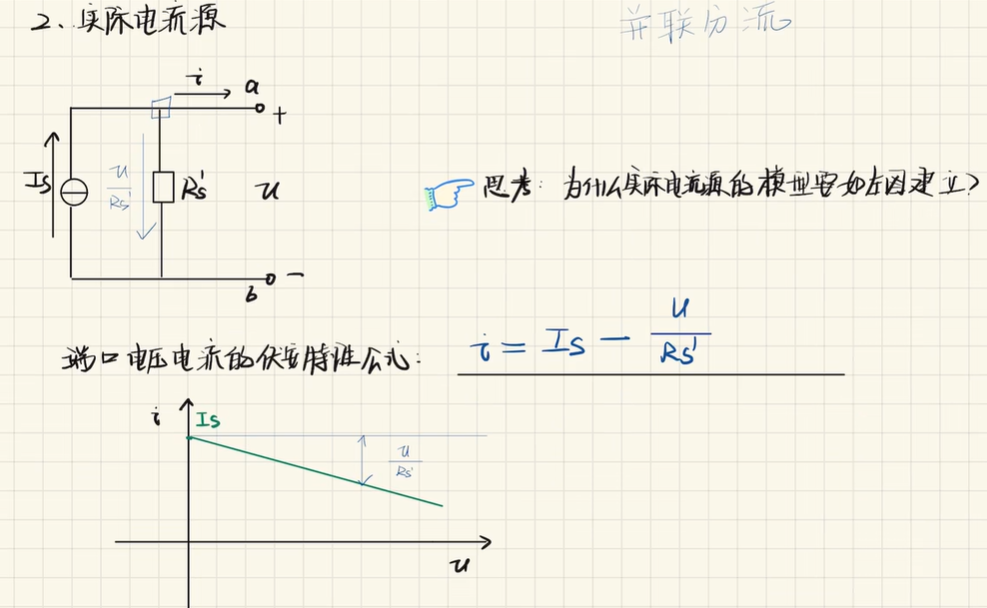 2、实际电流源
并联分流
i
a
+
Is
u
Rs'
Rs'
u
思考：为什么实际电流源的模型要如左图建立？
b
−
端口电压电流的伏安特性公式：
i = Is − u/Rs'
i
Is
u
Rs'
u